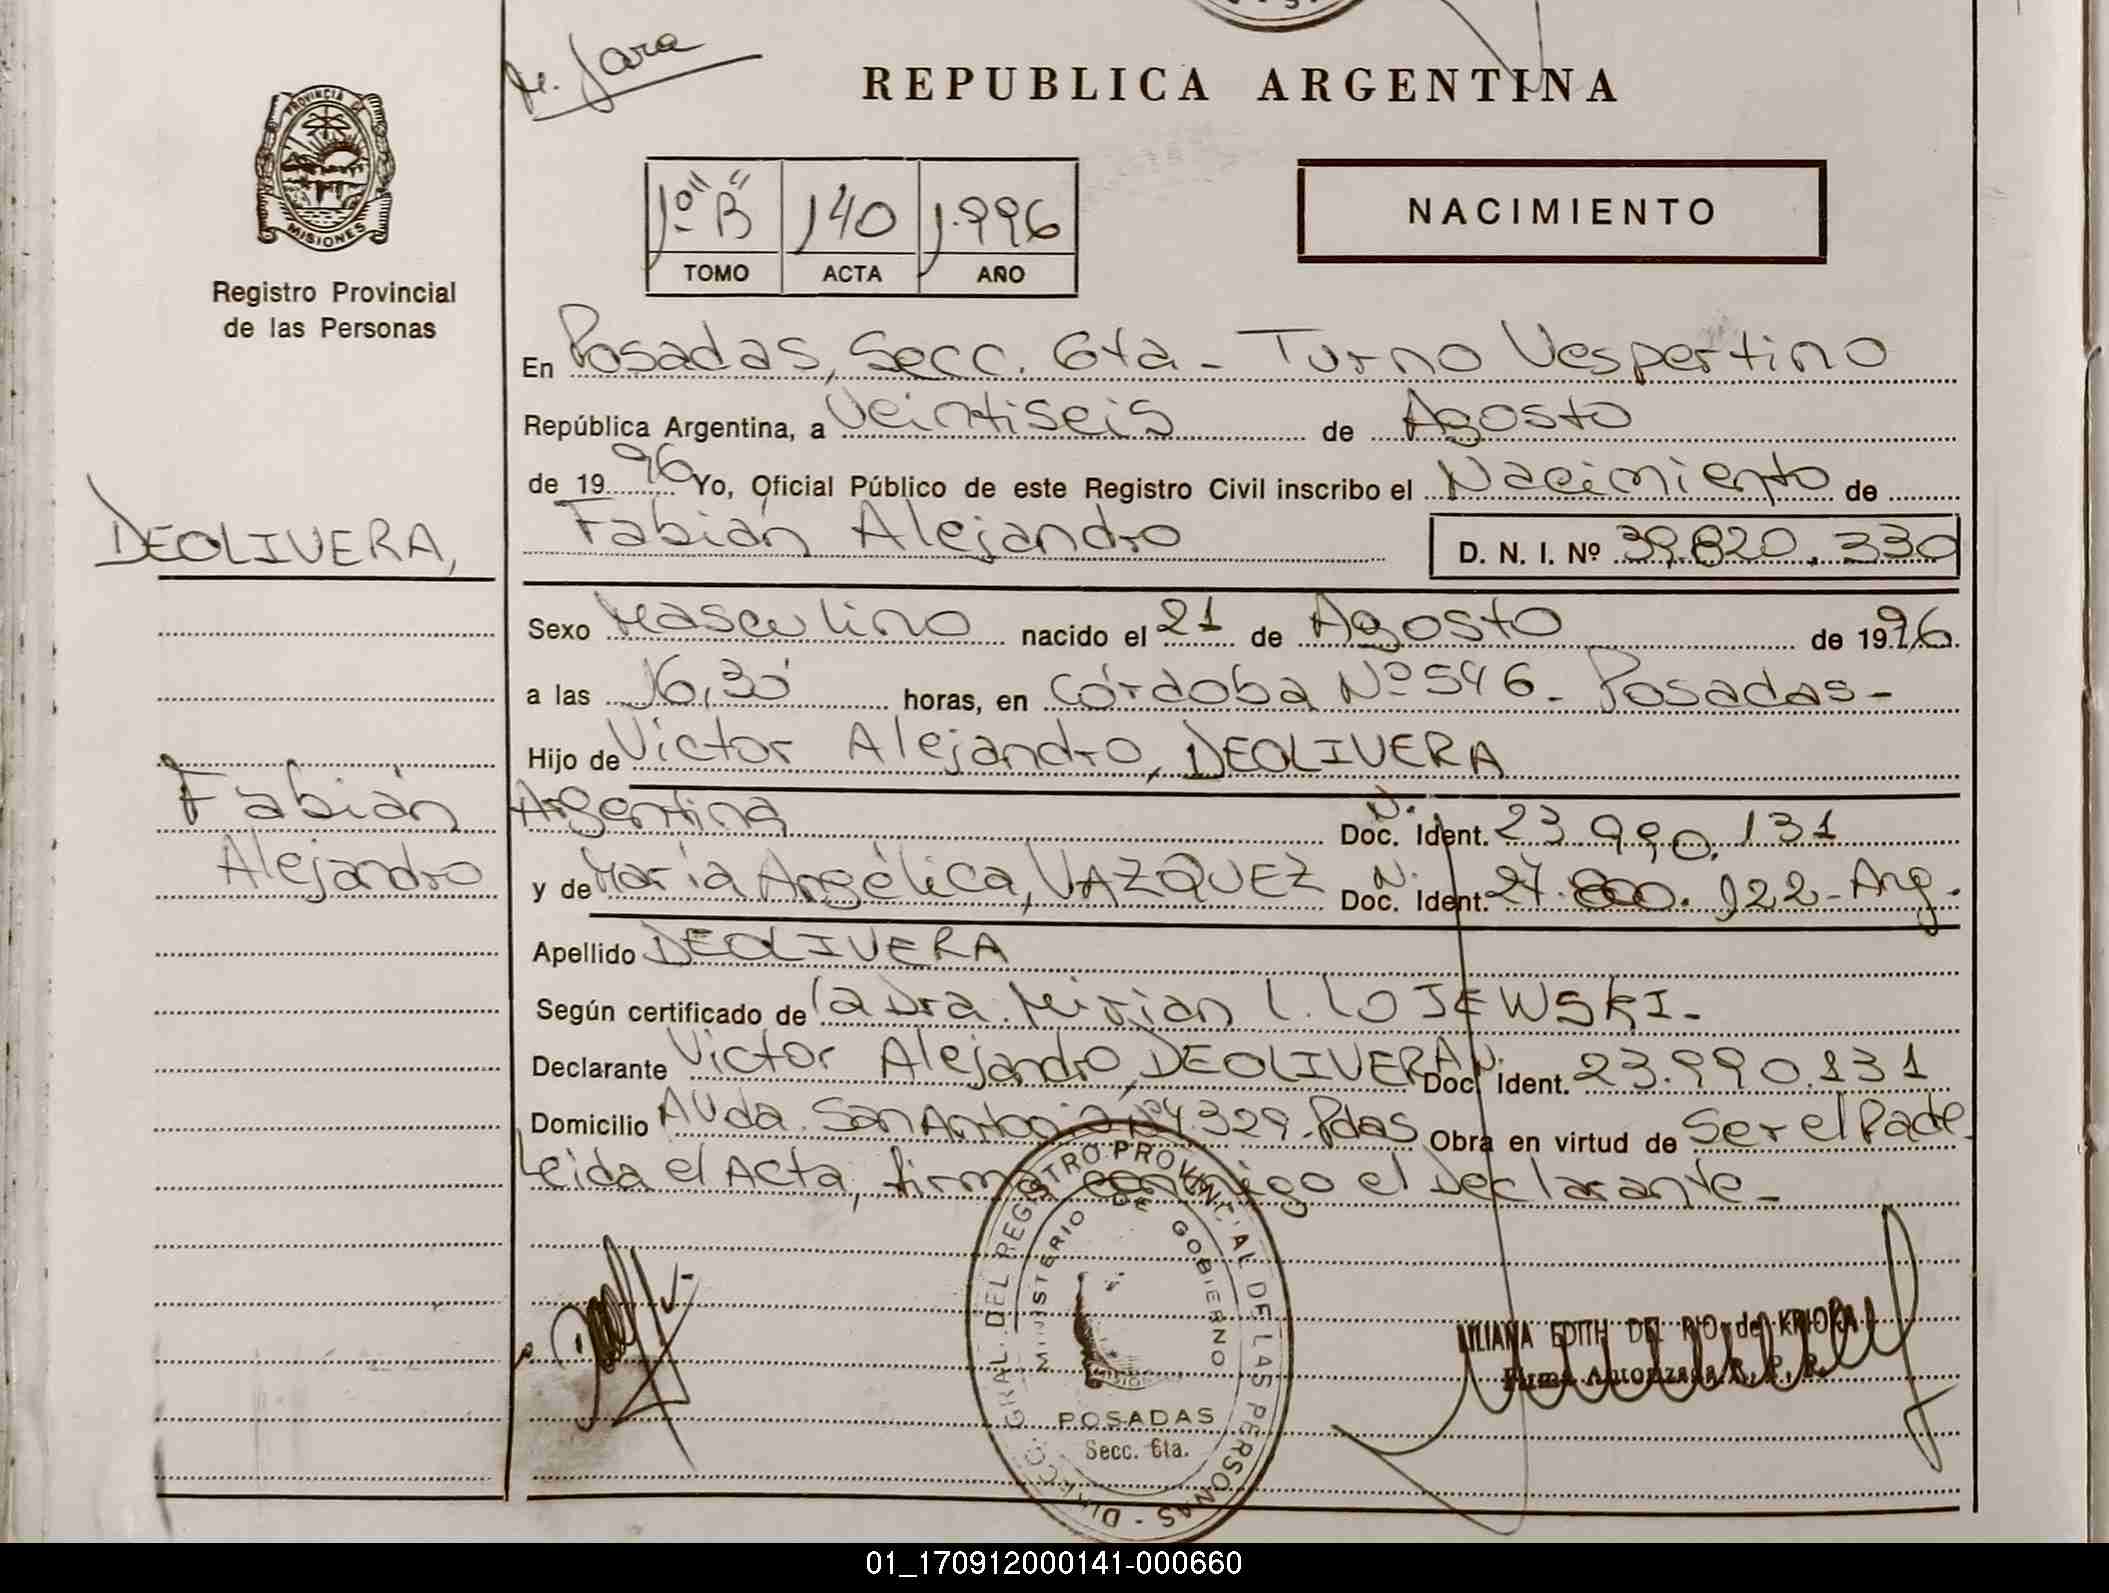 M. Jara
REPUBLICA ARGENTINA
PROVINCIA DE
MISIONES
Registro Provincial
de las Personas
1º "B" 140 1.996
TOMO ACTA AÑO
NACIMIENTO
En Posadas, Secc. 6ta - Turno Vespertino
República Argentina, a Veintiseis de Agosto
de 1996 Yo, Oficial Público de este Registro Civil inscribo el Nacimiento de
Fabián Alejandro D. N. I. Nº 39.820.330
DEOLIVERA,
Sexo Masculino nacido el 21 de Agosto de 1996.
a las 16,30 horas, en Córdoba Nº 546 - Posadas -
Hijo de Victor Alejandro, DEOLIVERA
Fabián
Alejandro
Argentina N. Doc. Ident. 23.990.131
y de María Angélica, VAZQUEZ N. Doc. Ident. 27.800.122 - Arg.
Apellido DEOLIVERA
Según certificado de la Dra. Mirian L. LOJEWSKI -
Declarante Victor Alejandro, DEOLIVERA N. Doc. Ident. 23.990.131
Domicilio Avda. San Antonio Nº 4.329 - Pdas Obra en virtud de Ser el Padre -
Leida el Acta, firma conmigo el Declarante -
DIREC. GRAL. DEL REGISTRO PROVINCIAL DE LAS PERSONAS -
MINISTERIO DE GOBIERNO
MISIONES
POSADAS
Secc. 6ta.
LILIANA EDITH DEL RIO de
Firma Autorizada R. P. P.
01_170912000141-000660